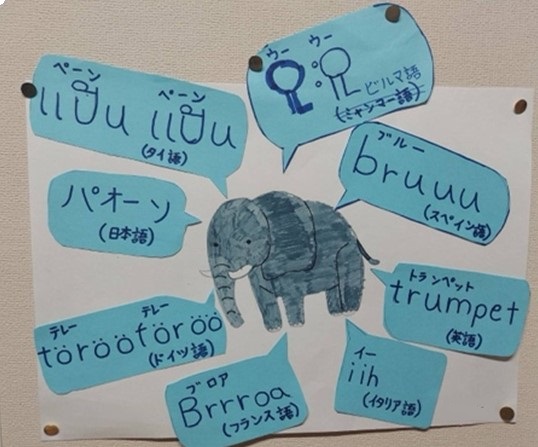 ペーン ペーン
แป๊น แป๊น
(タイ語)
ウー ウー
ビルマ語
(ミャンマー語)
ブルー
bruuu
(スペイン語)
パオーン
(日本語)
トランペット
trumpet
(英語)
テレー テレー
törööföröö
(ドイツ語)
ブロア
Brrroa
(フランス語)
イー
iih
(イタリア語)